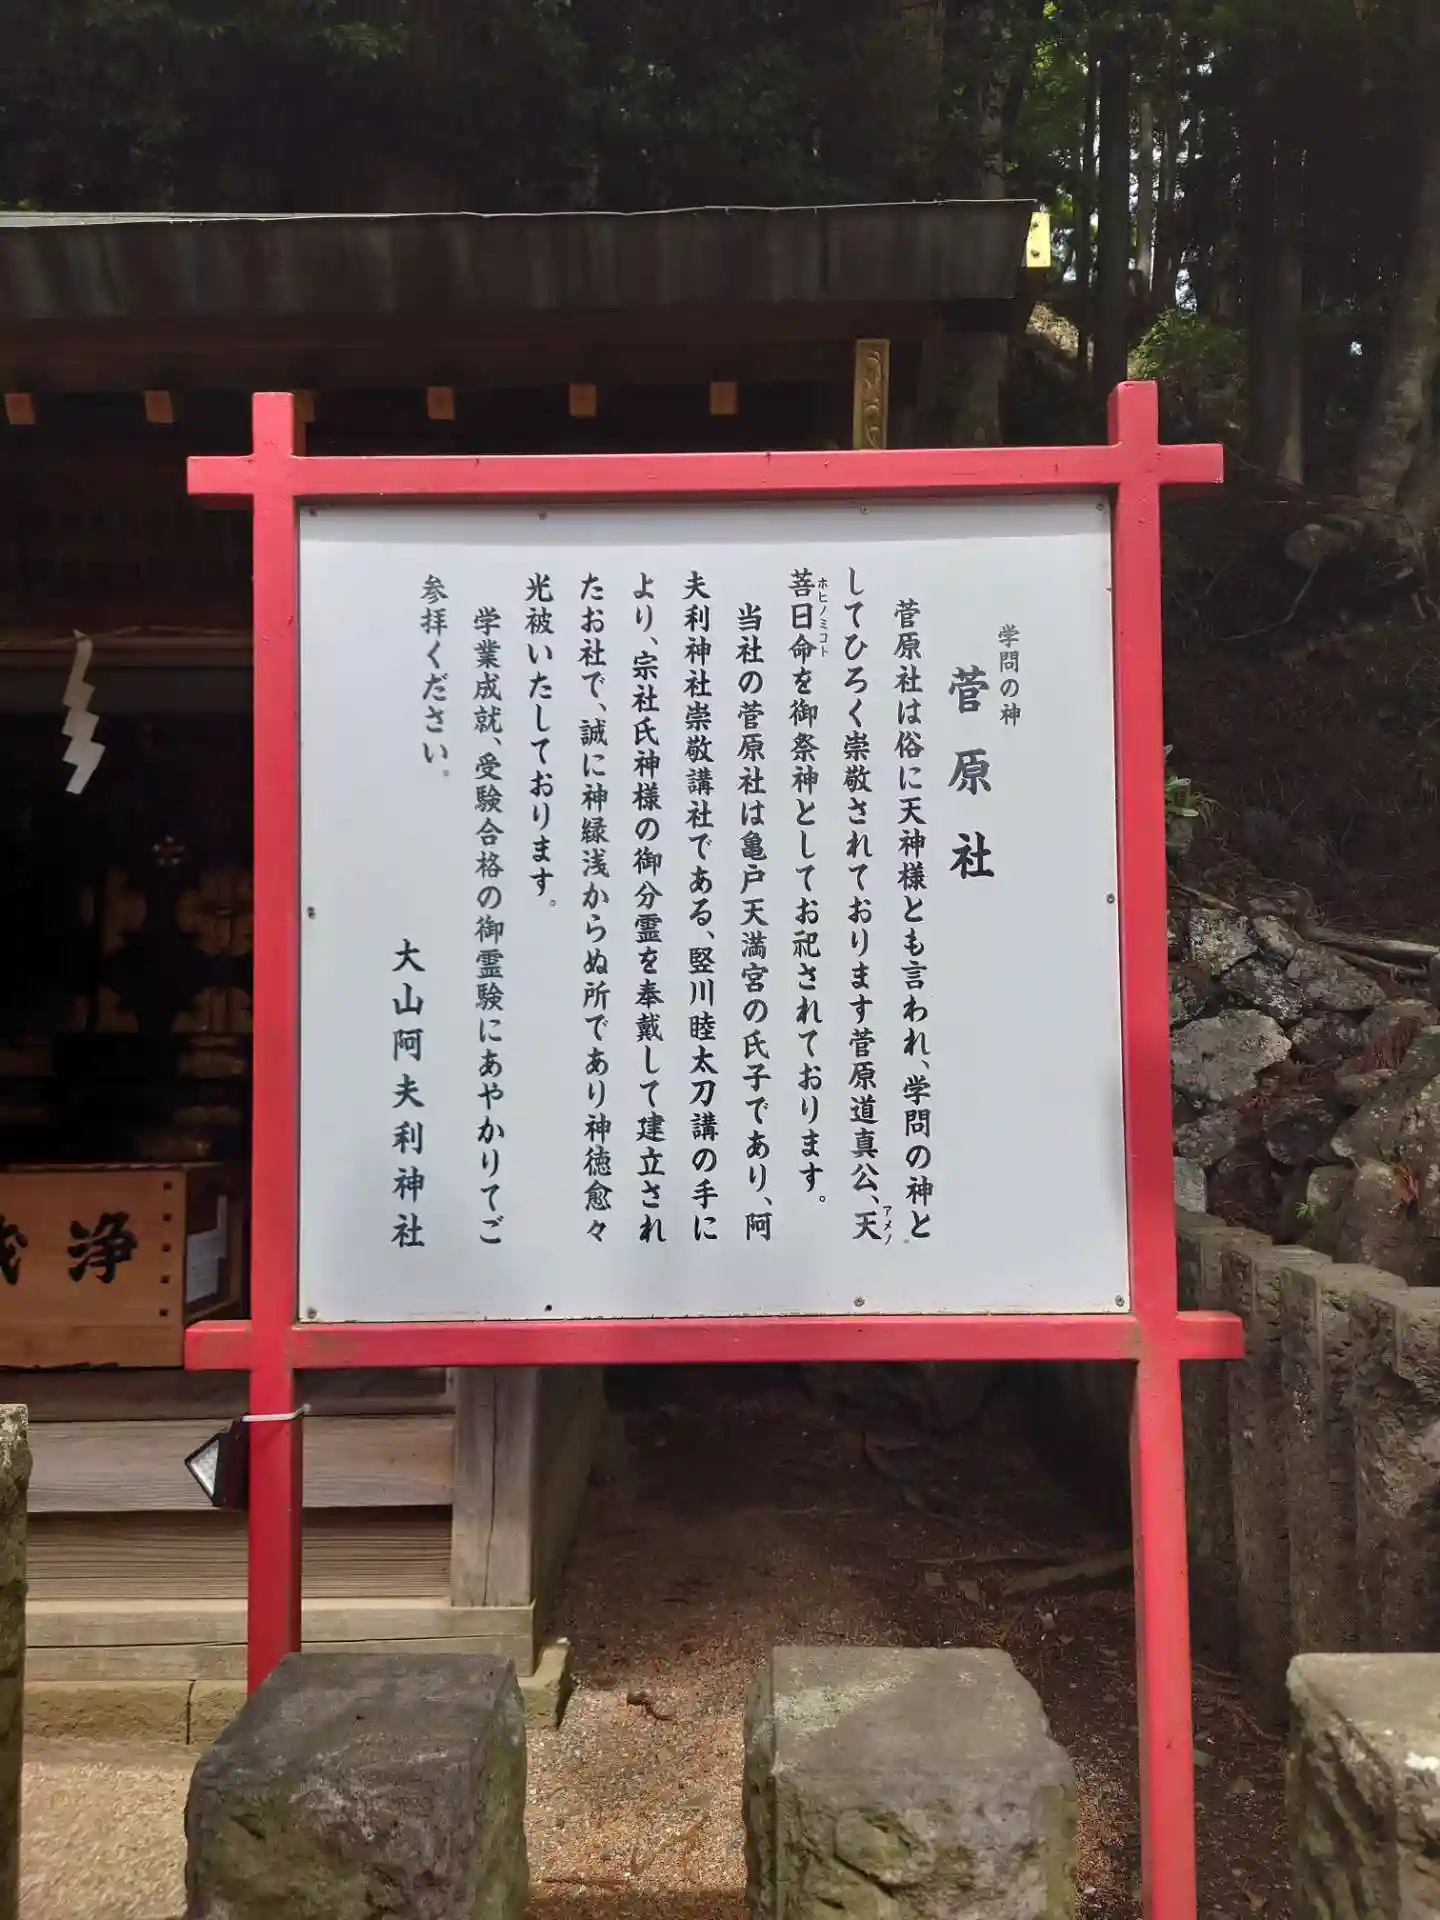 学問の神
菅原社
菅原社は俗に天神様とも言われ、学問の神と
してひろく崇敬されております菅原道真公、天
アメノ
菩日命を御祭神としてお祀されております。
ホヒノミコト
当社の菅原社は亀戸天満宮の氏子であり、阿
夫利神社崇敬講社である、竪川睦太刀講の手に
より、宗社氏神様の御分霊を奉戴して建立され
たお社で、誠に神緑浅からぬ所であり神徳愈々
光被いたしております。
学業成就、受験合格の御霊験にあやかりてご
参拝ください。
大山阿夫利神社
浄